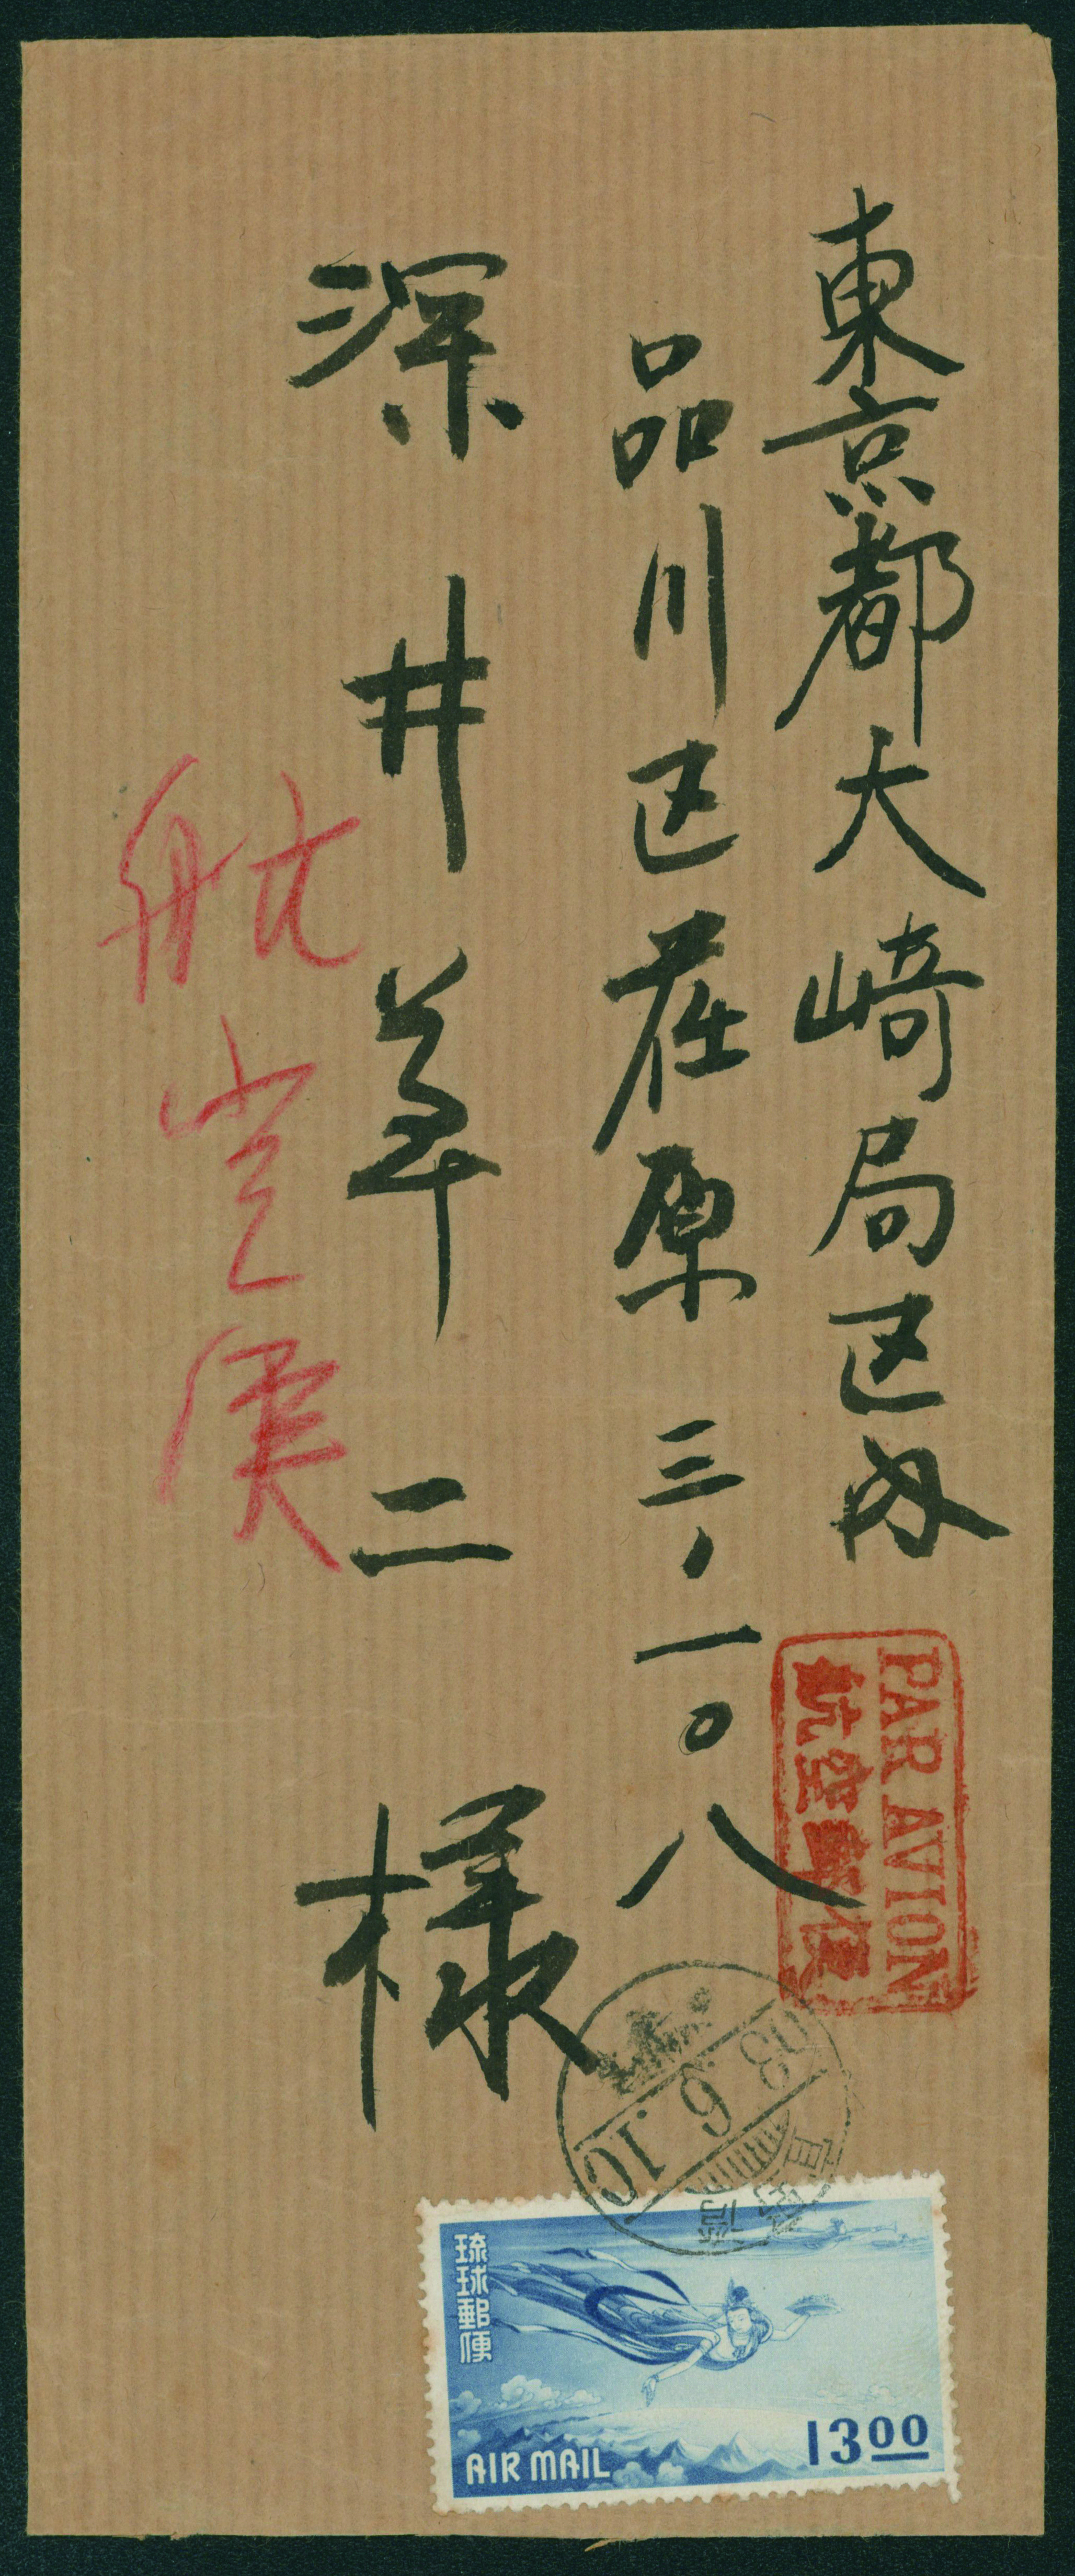 東京都大崎局区内
品川区荏原三、一〇八
深井 二 様
航空便
PAR AVION
航空郵便
53 6.10
琉球郵便
AIR MAIL
1300